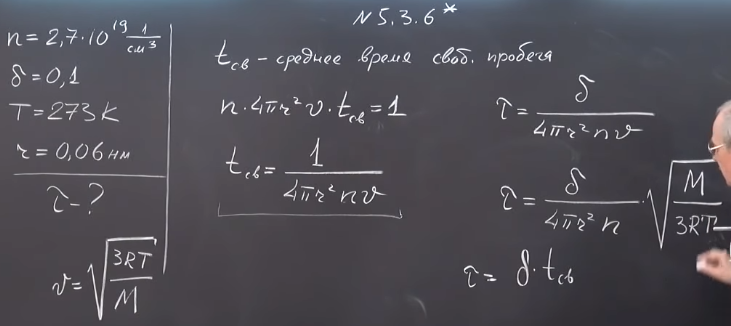 N 5.3.6*
n = 2,7·10¹⁹ 1/см³
δ = 0,1
T = 273 K
r = 0,06 нм
τ - ?
v = √(3RT/M)
t_св - среднее время своб. пробега
n · 4πr² v · t_св = 1
t_св = 1/(4πr² n v)
τ = δ/(4πr² n v)
τ = δ/(4πr² n) · √(M/3RT)
τ = δ · t_св